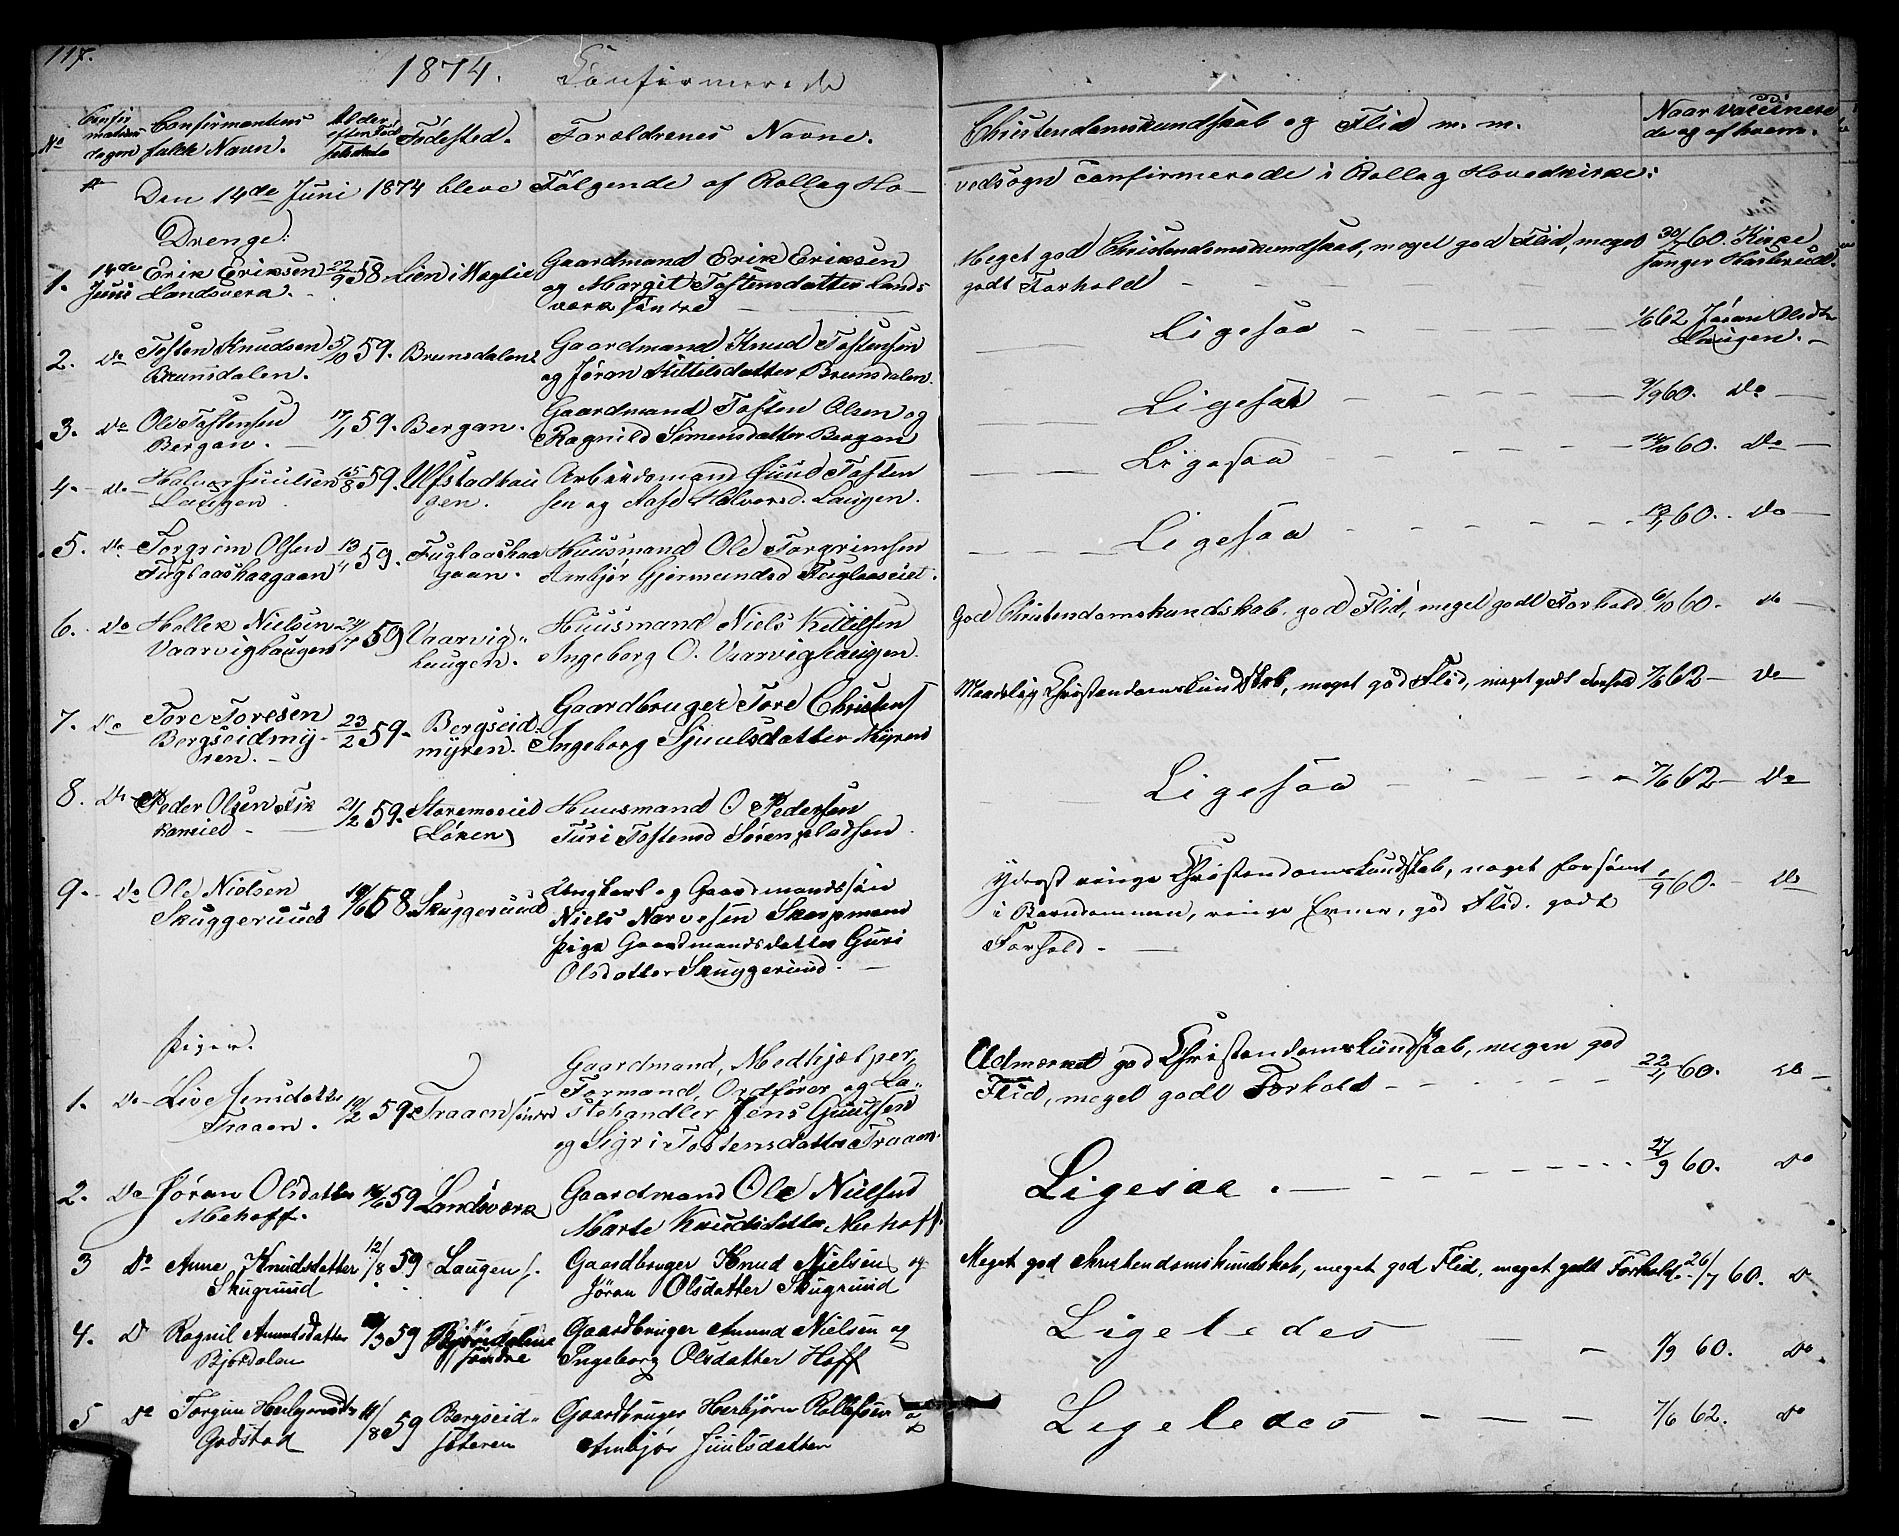 117.
1874. Confirmerede
No Confirmationsdagen Confirmantens fulde Navn. Alder efter Fødselsdato Fødested. Forældrenes Navne. Christendomskundskab og Flid m. m. Naar vaccinerede og af hvem.
Den 14de Juni 1874 bleve Følgende af Rollag Ho-
vedsogn confirmerede i Rollag Hovedkirke:
Drenge:
1. 14de Juni Erik Eriksen Landsverk. 22/9 58 Lien i Væglie Gaardmand Erik Eriksen
og Margit Tostensdatter Lands
værk søndre
Meget god Christendomskundskab, meget god Flid, meget
godt Forhold
30/7 60. Kirke
sanger Hasberud.
2. Do Tosten Knudsen
Brunsdalen. 59. Brunsdalen. Gaardmand Knud Tostensen
og Jøran Kittilsdatter Brunsdalen.
Ligesaa
1/6 62 Jøran Olsdtr
Laugen.
3. Do Ole Tostensen
Bergan. 17/1 59. Bergan. Gaardmand Tosten Olsen og
Ragnild Simensdatter Bergan
Ligesaa
9/9 60. Do
4. Do Halvor Juulsen
Laugen 25/8 59. Ulfstadhau
gen. Arbeidsmand Juul Tosten
sen og Aase Halvorsd. Laugen.
Ligesaa
60. Do
5. Do Torgrim Olsen
Fuglaashaagaan 13/4 59. Fuglaashaa
gaan. Huusmand Ole Torgrimsen
Ambjør Gjermundsd Fuglaaseiet.
Ligesaa
60. Do
6. Do Hellek Nielsen
Vaarvighaugen 24/7 59 Vaarvig
haugen. Huusmand Niels Kittilsen
Ingeborg O. Vaarvighaugen.
God Christendomskundskab. god Flid, meget godt Forhold
6/10 60. do
7. Do Tore Toresen
Bergseidmy-
ren. 23/2 59. Bergseid
myren. Gaardbruger Tore Christens
Ingeborg Sjuulsdatter Myren
Maadelig Christendomskundskab, meget god Flid, meget godt Forhold
7/6 62 Do
8. Do Peder Olsen Fik
kaneied 21/2 59. Storemoeied
(Løken) Huusmand O. Pedersen
Turi Tostensd Sørenpladsen.
Ligesaa
7/6 62 Do
9. Do Ole Nielsen
Skuggeruud 19/6 58 Skuggeruud Ungkarl og Gaardmandssøn
Niels Narvesen Skarpmoen
Pige Gaardmandsdatter Guri
Olsdatter Skuggeruud.
Yderst ringe Christendomskundskab, meget forsømt
i Barndommen, ringe Evner, god Flid. godt
Forhold.
1/9 60. Do
Piger.
1. Do Live Jensdatter
Traaen. 19/2 59 Traaen søndre Gaardmand, Medhjælper,
Formand, Ordfører og La-
stehandler Jens Guulsen
og Sigri Tostensdatter Traaen.
Udmærket god Christendomskundskab, megen god
Flid, meget godt Forhold
22/4 60. do
2. Do Jøran Olsdatter
Mehoff. 14/6 59 Landsværk Gaardmand Ole Nielsen
Marte Knudsdatter Mehoff.
Ligesaa.
27/9 60. Do
3 Do Anne Knudsdatter
Skugruud 12/8 59 Laugen Gaardbruger Knud Nielsen og
Jøran Olsdatter Skugruud
Meget god Christendomskundskab, meget god Flid, meget godt Forhold
26/7 60. D
4. D Ragnil Amundsdatter
Bjørdalen 59 søndre Gaardbruger Amund Nielsen og
Ingeborg Olsdatter Hoff
Ligeledes
9/9 60. Do.
5 Do Torgun Herbjørnsdtr
Godstad 11/8 59 Bergseid-
søteren Gaardbruger Herbjørn Rollefsen og
Ambjør Juulsdatter
Ligeledes
7/6 62. do